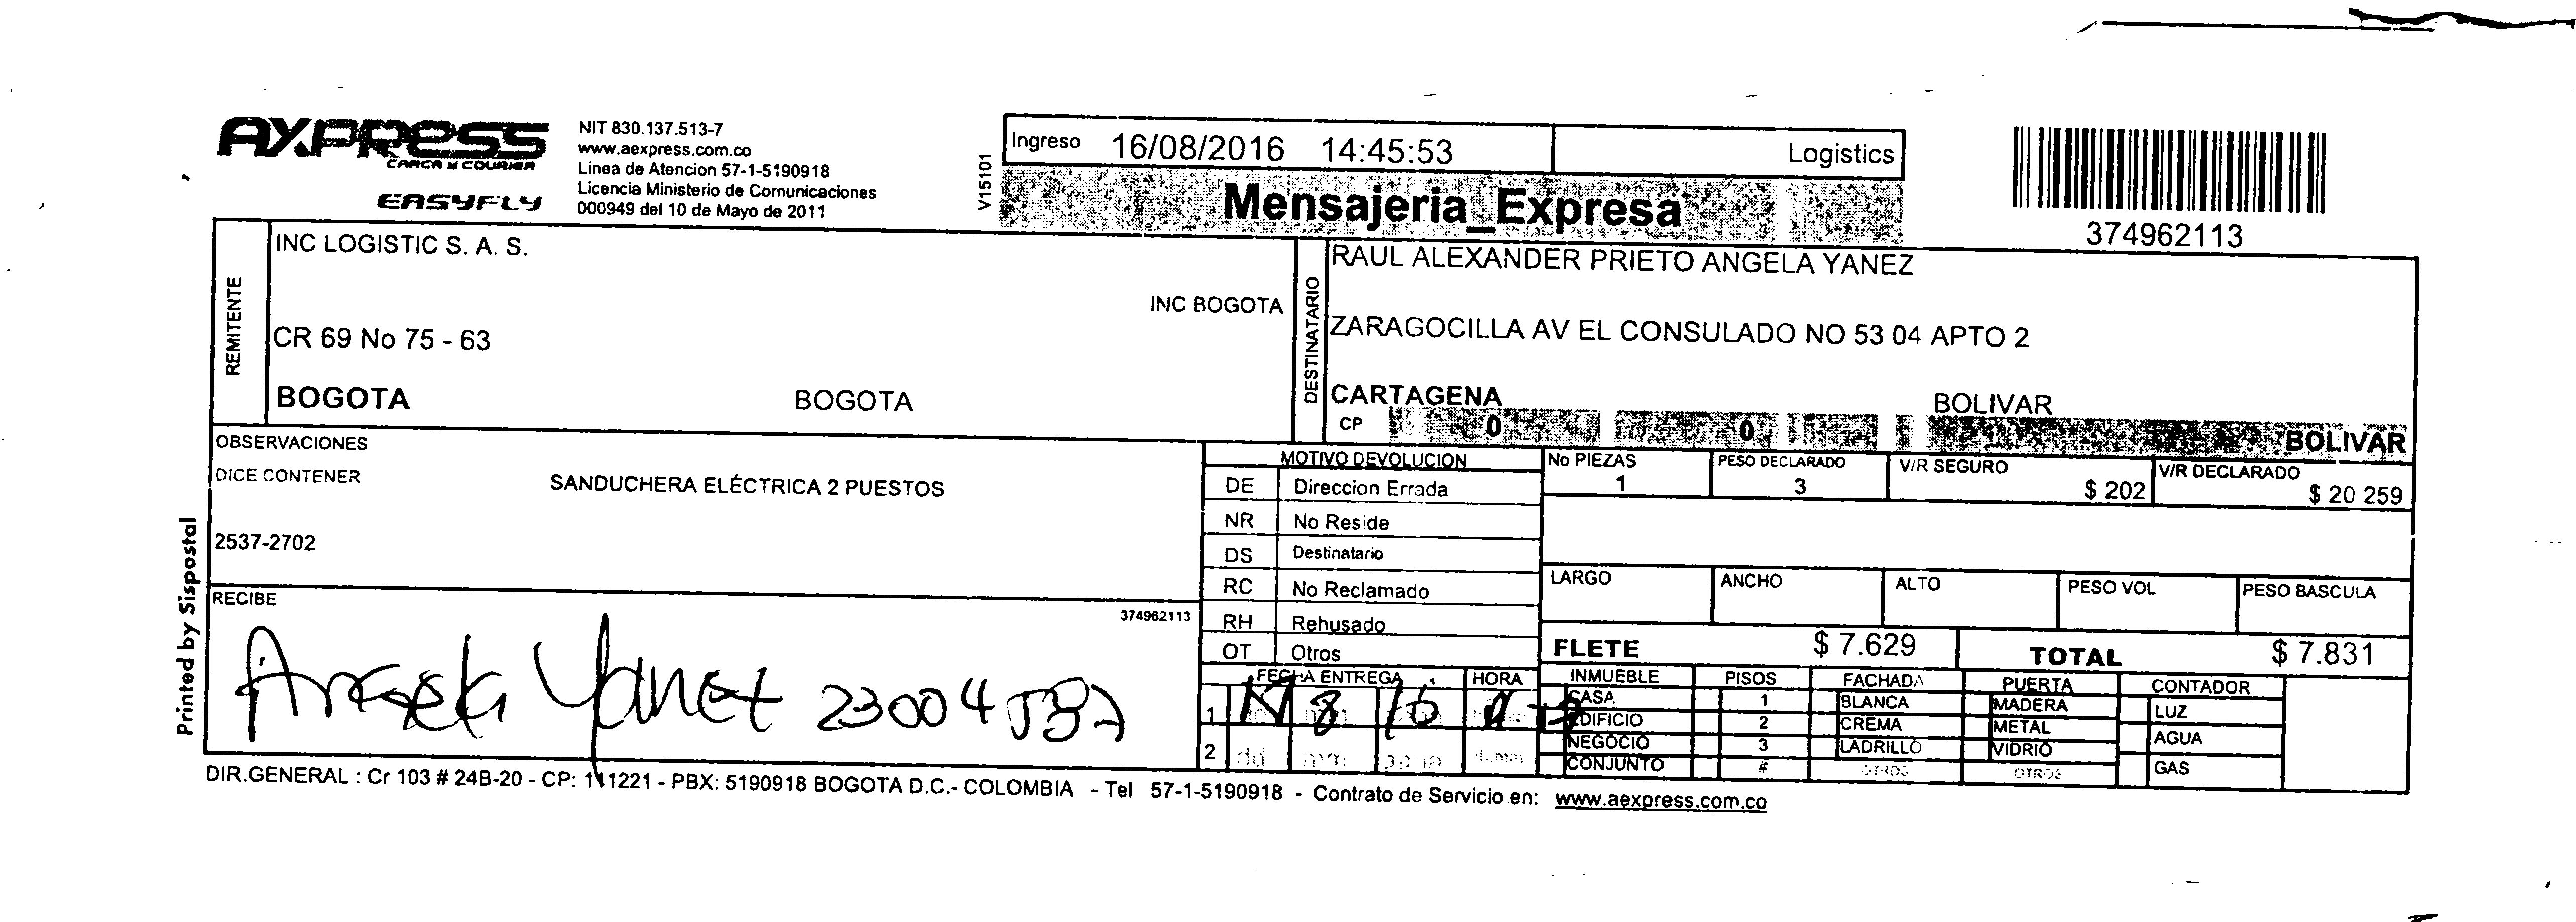 AXPRESS
CARGA Y COURIER
EASYFLY
NIT 830.137.513-7
www.aexpress.com.co
Linea de Atencion 57-1-5190918
Licencia Ministerio de Comunicaciones
000949 del 10 de Mayo de 2011
V15101
Ingreso 16/08/2016 14:45:53 Logistics
Mensajeria_Expresa
374962113
REMITENTE
INC LOGISTIC S. A. S.
INC BOGOTA
CR 69 No 75 - 63
BOGOTA BOGOTA
DESTINATARIO
RAUL ALEXANDER PRIETO ANGELA YANEZ
ZARAGOCILLA AV EL CONSULADO NO 53 04 APTO 2
CARTAGENA BOLIVAR
CP 0 0 BOLIVAR
OBSERVACIONES
DICE CONTENER SANDUCHERA ELÉCTRICA 2 PUESTOS
2537-2702
MOTIVO DEVOLUCION
DE Direccion Errada
NR No Reside
DS Destinatario
RC No Reclamado
RH Rehusado
OT Otros
No PIEZAS PESO DECLARADO V/R SEGURO V/R DECLARADO
1 3 $ 202 $ 20 259
LARGO ANCHO ALTO PESO VOL PESO BASCULA
FLETE $ 7.629 TOTAL $ 7.831
RECIBE 374962113
Angela Yanez
FECHA ENTREGA HORA
1 8 16
2 dd mm
INMUEBLE PISOS FACHADA PUERTA CONTADOR
CASA 1 BLANCA MADERA LUZ
EDIFICIO 2 CREMA METAL AGUA
NEGOCIO 3 LADRILLO VIDRIO GAS
CONJUNTO # OTROS OTROS
Printed by Sispostal
DIR.GENERAL : Cr 103 # 24B-20 - CP: 111221 - PBX: 5190918 BOGOTA D.C.- COLOMBIA - Tel 57-1-5190918 - Contrato de Servicio en: www.aexpress.com.co